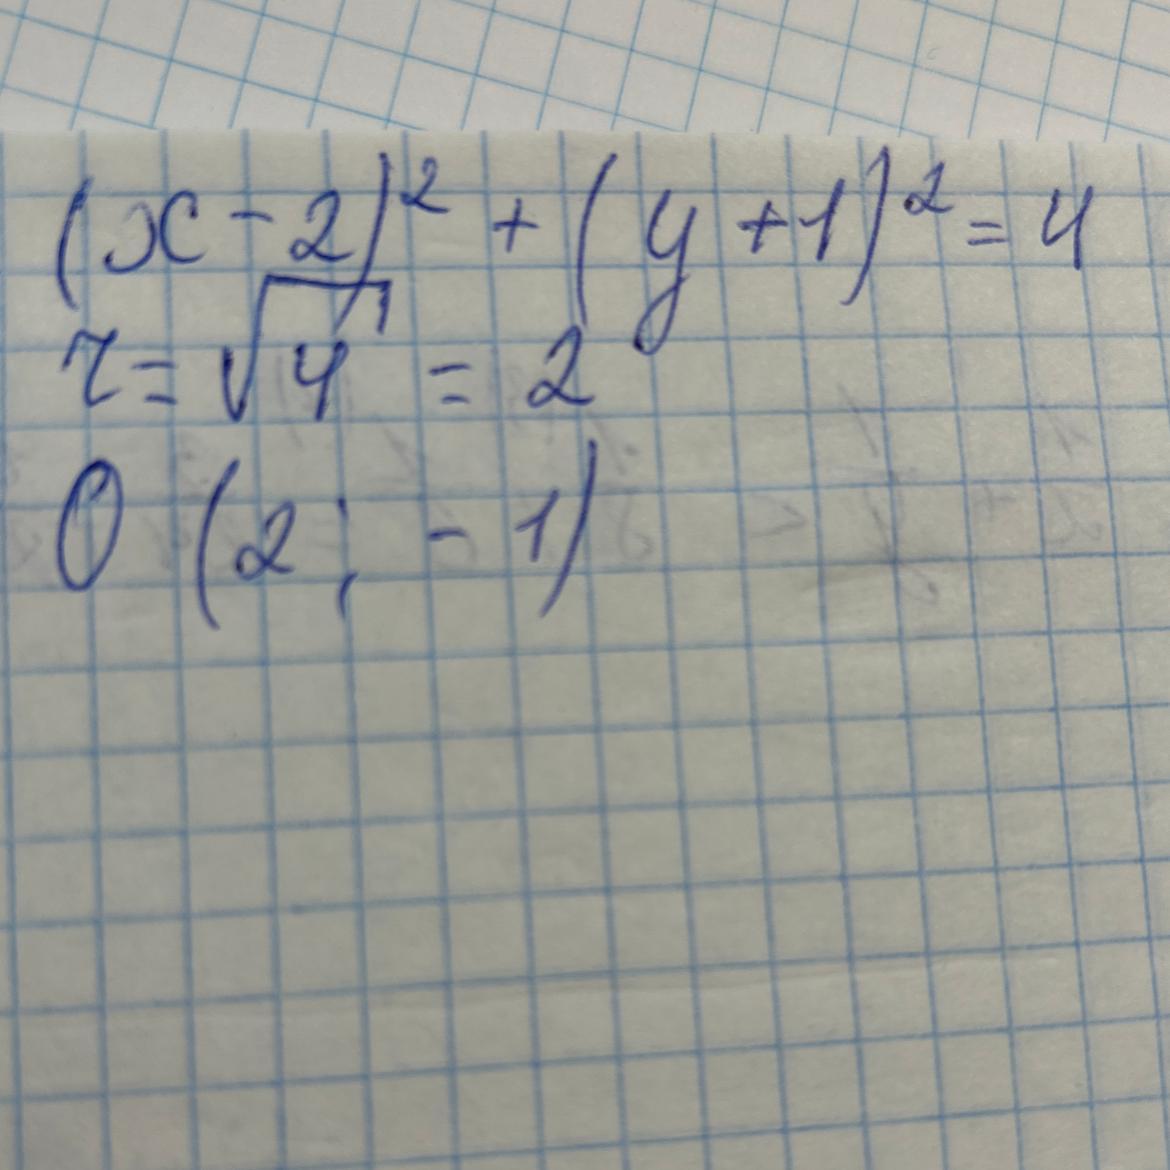 (x - 2)² + (y + 1)² = 4
r = √4 = 2
O (2; - 1)